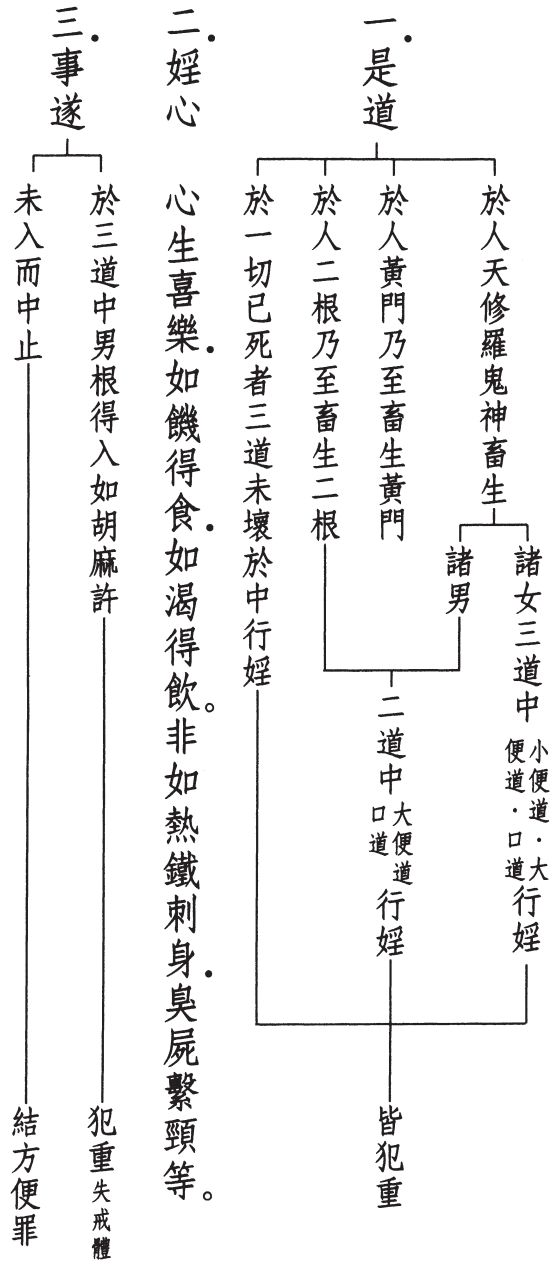 一．是道
於人天修羅鬼神畜生
諸女三道中
小便道．大
便道．口道
行婬
諸男
於人黃門乃至畜生黃門
於人二根乃至畜生二根
二道中
大便道
口道
行婬
於一切已死者三道未壞於中行婬
皆犯重
二．婬心
心生喜樂．如饑得食．如渴得飲。非如熱鐵刺身．臭屍繫頸等。
三．事遂
於三道中男根得入如胡麻許
犯重失戒體
未入而中止
結方便罪